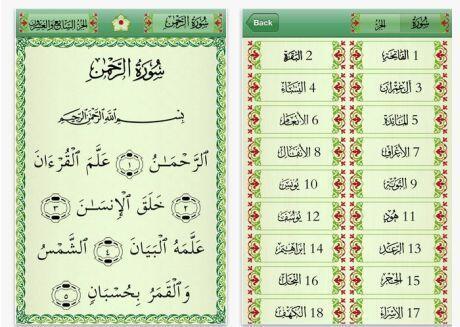 سورة الرحمن الجزء السابع والعشرون
سُورَةُ الرَّحْمَٰن
بِسْمِ اللَّهِ الرَّحْمَٰنِ الرَّحِيمِ
ٱلرَّحْمَـٰنُ ١ عَلَّمَ ٱلْقُرْءَانَ
٢ خَلَقَ ٱلْإِنسَـٰنَ ٣
عَلَّمَهُ ٱلْبَيَانَ ٤ ٱلشَّمْسُ
وَٱلْقَمَرُ بِحُسْبَانٍ ٥
Back الجزء سورة
1 الفاتحة 2 البقرة
3 آل عمران 4 النساء
5 المائدة 6 الأنعام
7 الأعراف 8 الأنفال
9 التوبة 10 يونس
11 هود 12 يوسف
13 الرعد 14 إبراهيم
15 الحجر 16 النحل
17 الإسراء 18 الكهف